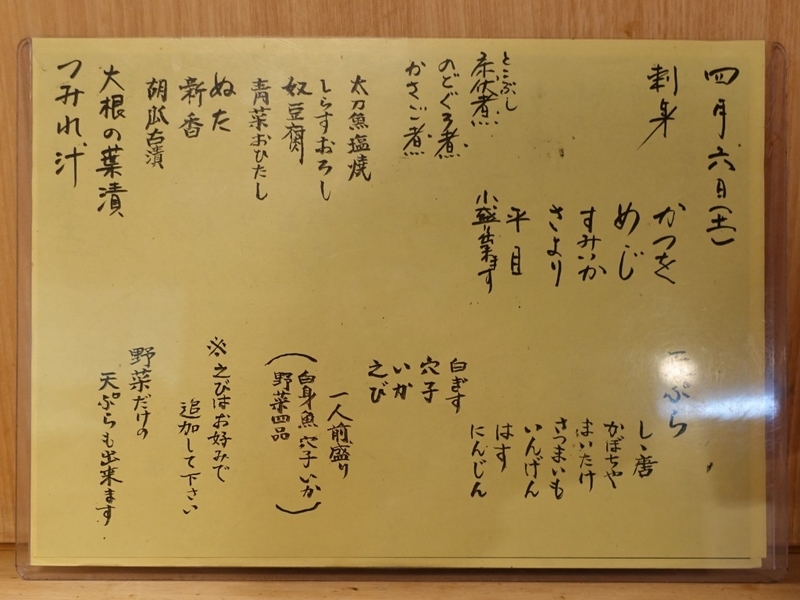 四月六日(土)
刺身
かつを
めじ
すみいか
さより
平目
小盛出来ます
とこぶし
床伏煮
のどぐろ煮
かさご煮
太刀魚塩焼
しらすおろし
奴豆腐
青菜おひたし
ぬた
新香
胡瓜古漬
大根の葉漬
つみれ汁
天ぷら
しゝ唐
かぼちゃ
まいたけ
さつまいも
いんげん
はす
にんじん
白ぎす
穴子
いか
えび
一人前盛り
(白身魚 穴子 いか
野菜四品)
※えびはお好みで
追加して下さい
野菜だけの
天ぷらも出来ます.